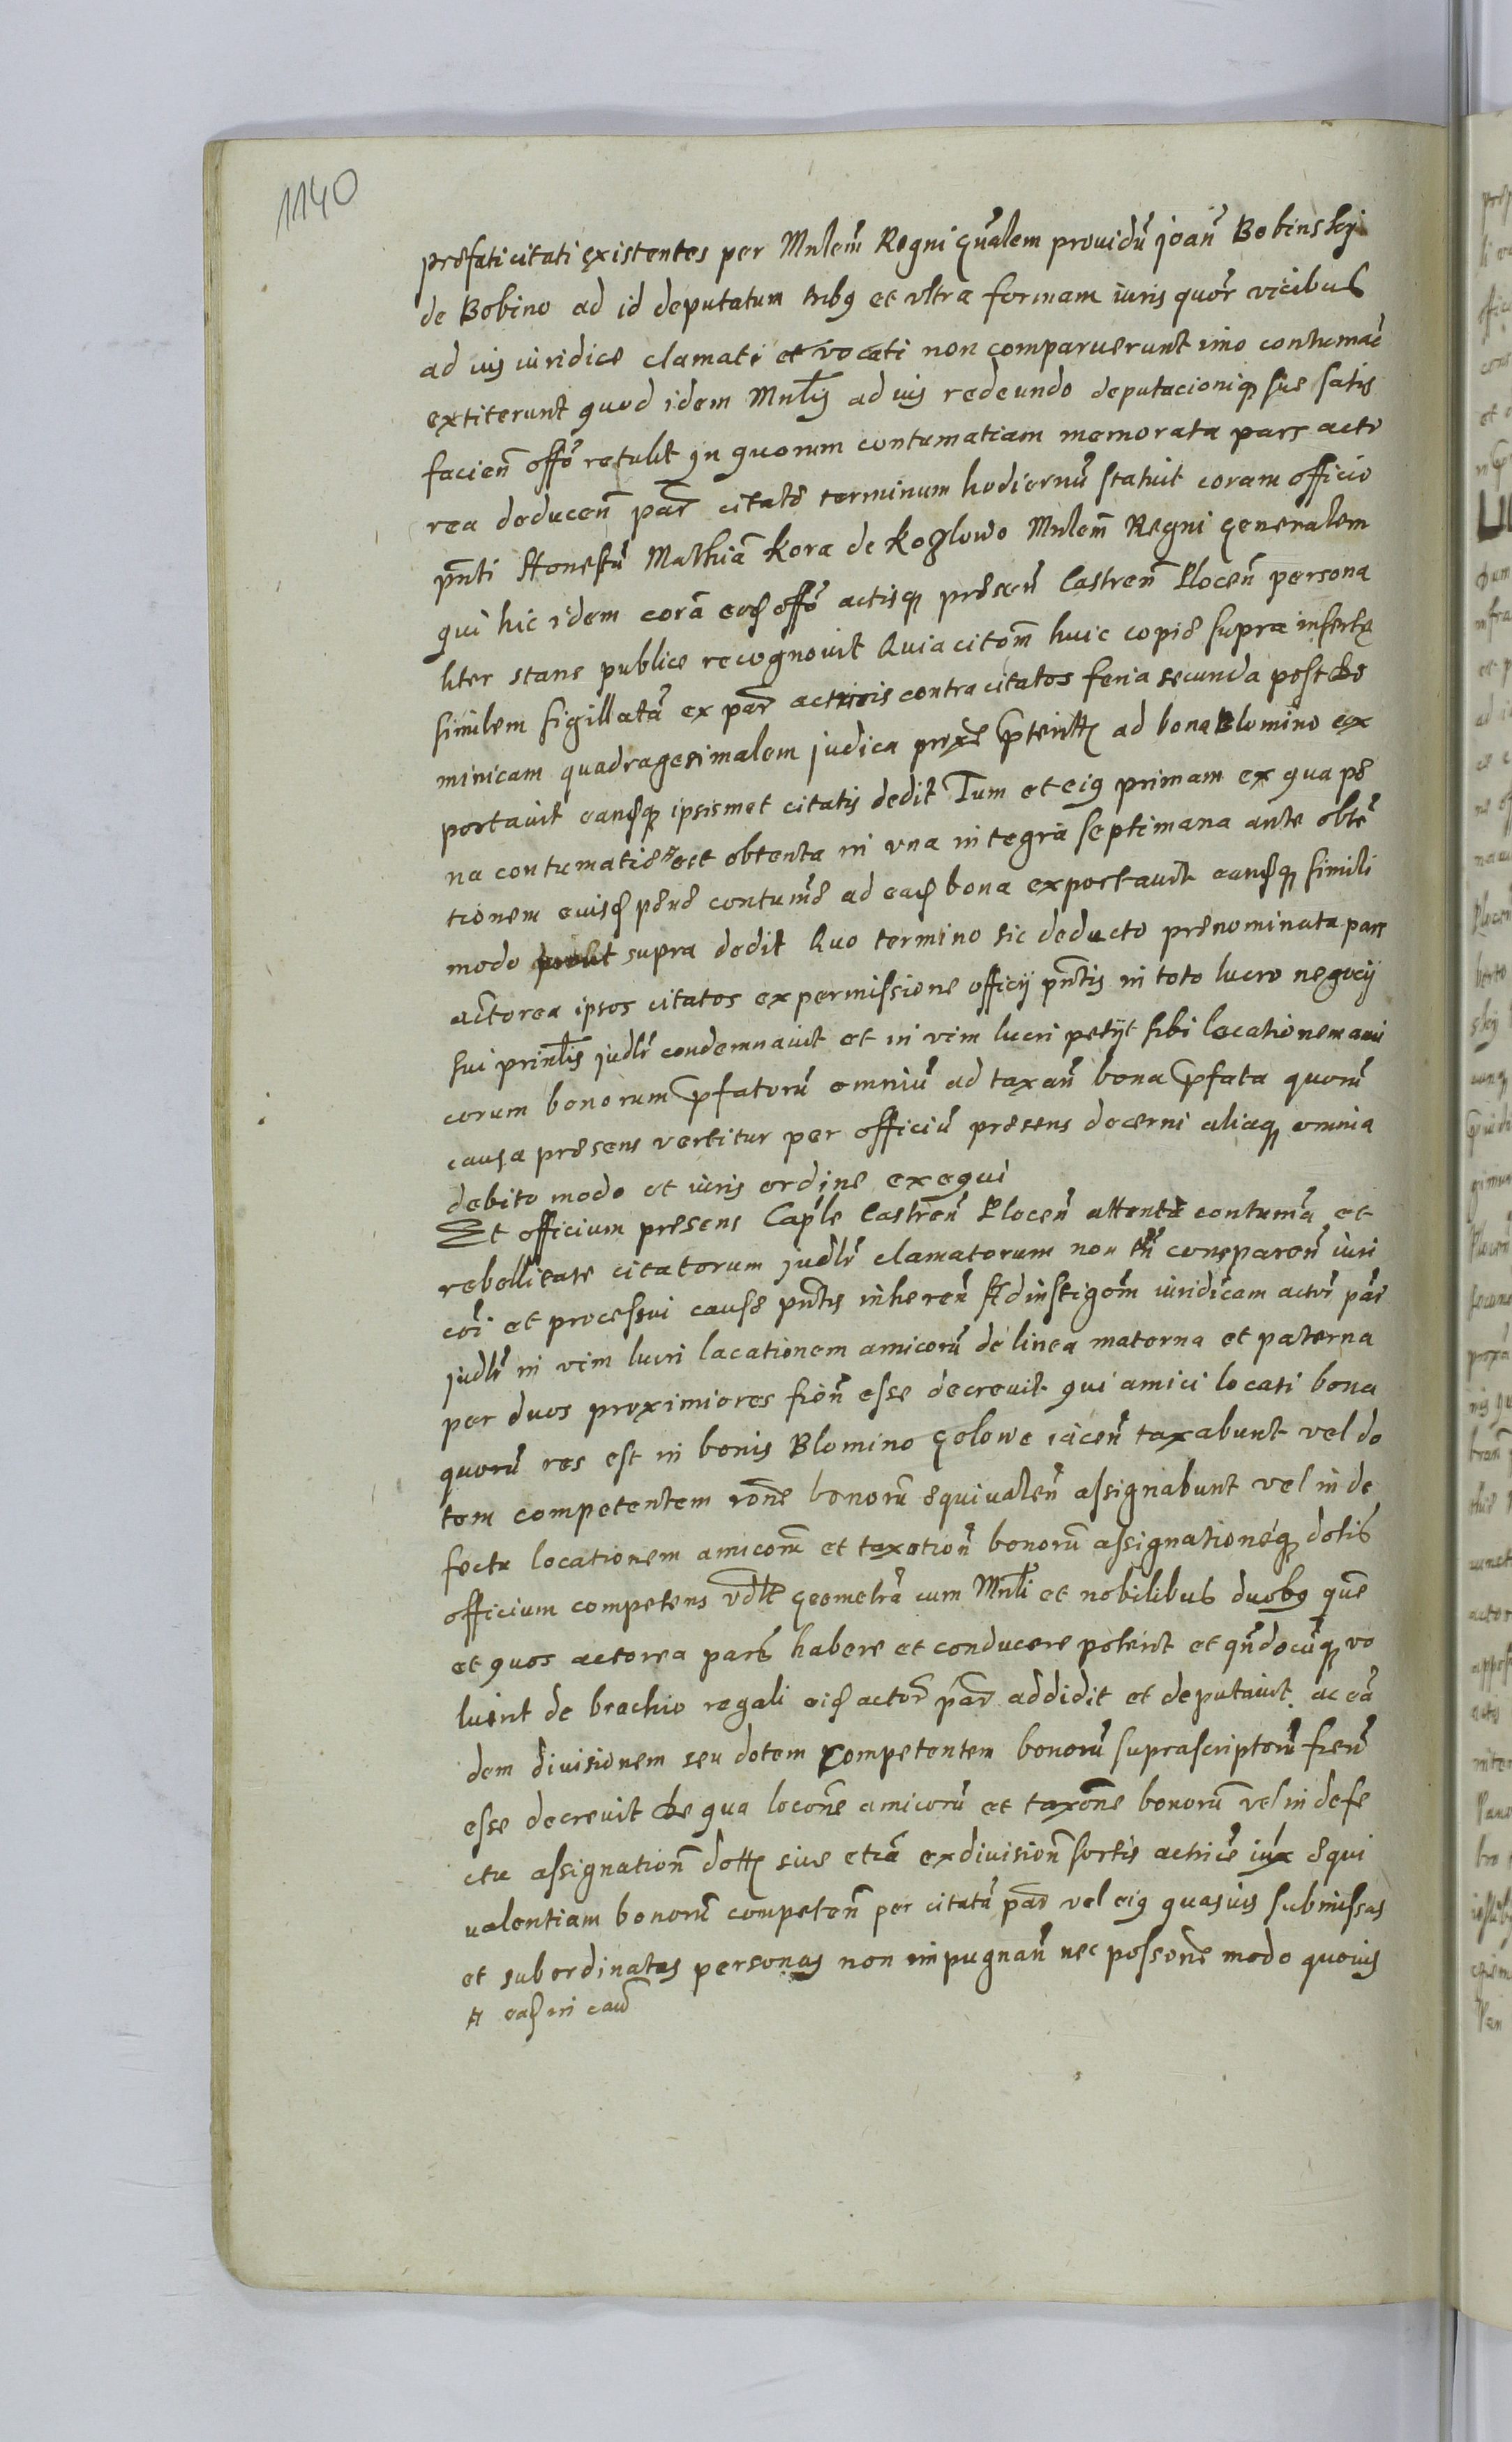 1140
prefati citati existentes per Mnlem̃ Regni gñalem prouidũ joañ Bobinskj
de Bobino ad id deputatum tribꝫ et vltra formam iuris quor̃ vicibus
ad ius iuridice clamati et vocati non comparuerunt imo contumac̃
extiterunt quod idem Mnl̃is ad ius redeundo deputacioniqꝫ sue satis
facieñ offõ retulit jn quorum contumatiam memorata pars acto
rea deduceñ par̃ citate terminum hodiernũ statuit coram officio
pñti Honestũ Mathiã Kora de Kozlowo Mnlem̃ Regni generalem
qui hic idem corã eod̃ offõ actisqꝫ preseñ Castreñ Ploceñ persona
liter stans publice recognouit Quia citom̃ huic copie supra inserte
similem sigillatã ex par̃ actricis contra citatos feria secunda post do
minicam quadragesimalem judica proxe p̃terit̃ ad bona Blomino ex
portauit eandqꝫ ipsismet citatis dedit Tum et eiꝫ primam ex qua pe
na contumatie est obtenta in vna integra septimana ante obtẽ
tionem euisd̃ pene contum̃e ad ead̃ bona exportauit eandqꝫ simili
modo prout supra dedit Quo termino sic deducto prenominata pars
actorea ipsos citatos ex permissione officij pñtis in toto lucro negocij
sui prinl̃is judlr̃ condemnauit et in vim lucri petijt sibi locationem ami
corum bonorum p̃fatorũ omniũ ad taxañ bona p̃fata quorũ
causa presens vertitur per officiũ presens decerni aliaqꝫ omnia
debito modo et iuris ordine exequi
Et officium presens Cap̃le Castreñ Ploceñ attenta contumã et
rebellitate citatorum judlr̃ clamatorum non tñ compareñ iuri
cõi et processui cause pñtis inhereñ Ad instigom̃ iuridicam actor̃ par̃
judlr̃ in vim lucri locationem amicorũ de linea materna et paterna
per duos proximiores fieñ esse decreuit qui amici locati bona
quorũ res est in bonis Blomino Golowe iaceñ taxabunt vel do
tem competentem rõne bonorũ equivaleñ assignabunt vel in de
fectu locationem amicorũ et taxatioñ bonorũ assignationẽqꝫ dotis
officium competens vdlt geometrã cum Mnl̃i et nobilibus duobꝫ quẽ
et quos actorea pars habere et conducere poterit et qñdocũqꝫ vo
luerit de brachio regali eid̃ actor̃ par̃ addidit et deputauit ac eã
dem diuisionem seu dotem competentem bonorũ suprascriptorũ fieñ
esse decreuit De qua locõne amicorũ et taxõne bonorũ vel in defe
ctu assignatioñ dot̃ siue etiã ex diuisioñ sortis actricẽ iux̃ equi
ualentiam bonorũ competeñ per citatã par̃ vel eiꝫ quasuis submissas
et subordinatas personas non impugnañ nec possõne modo quouis
# ead̃ in caũ